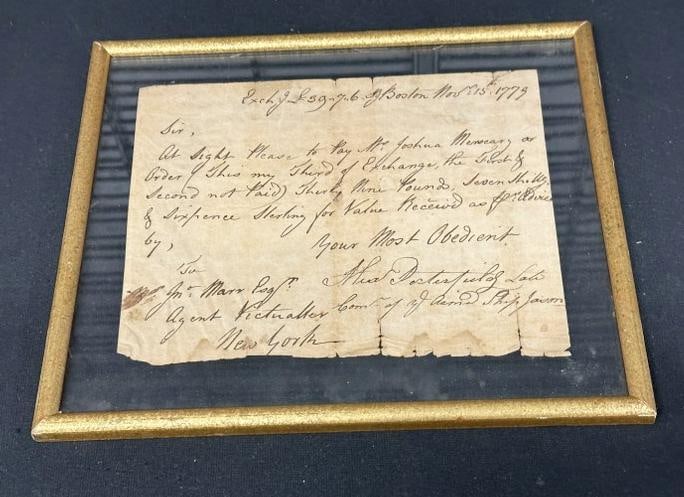 Exch: £39..7..6 Boston Novr. 15th. 1779
Sir,
At Sight Please to Pay Mr. Joshua Merseary or
Order (This my Third of Exchange, the First &
Second not Paid) Thirty Nine Pounds, Seven Shills.
& Sixpence Sterling for Value Received as pr. Advice
by,
Your Most Obedient
To
Jno. Marr Esqr. Late
Agent Victualler Comr. of ye Armd Ship Jason
New York